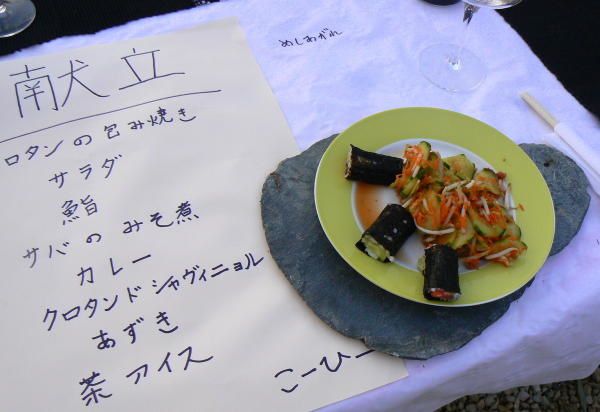 献立
ロタンの包み焼き
サラダ
鮨
サバのみそ煮
カレー
クロタンドシャヴィニョル
あずき
茶アイス
こーひー
めしあがれ